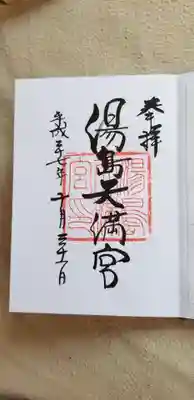 奉拝
湯島天満宮
平成二十七年十月三十一日